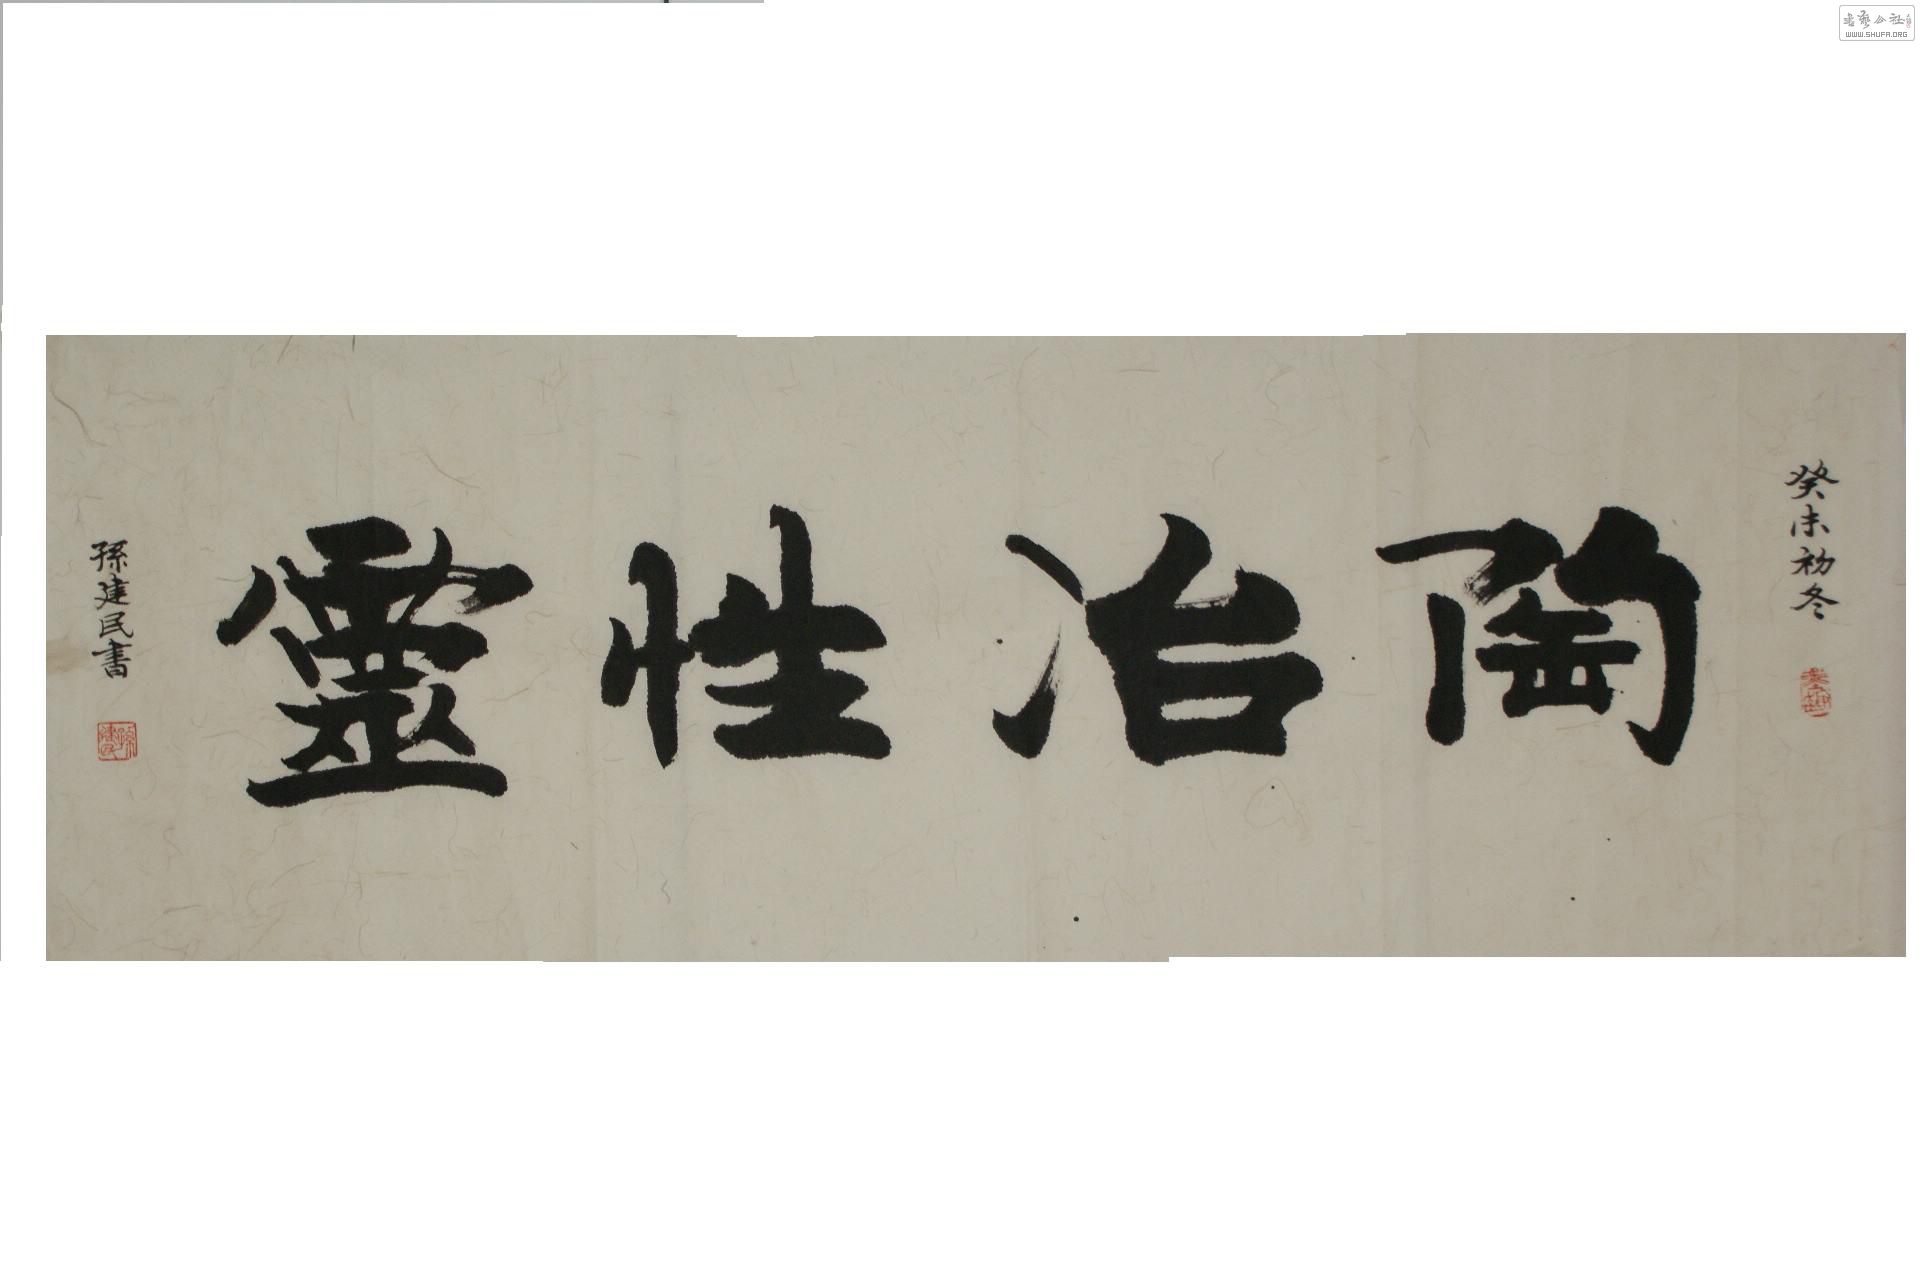 癸未初冬
陶冶性靈
孫建民書
書藝公社
WWW.SHUFA.ORG